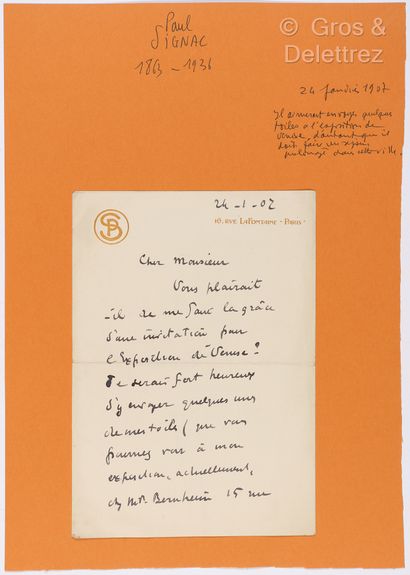 © Gros &
Delettrez
Paul
SIGNAC
1863 - 1936
24 janvier 1907
Il aimerait envoyer quelques
toiles à l'exposition de
Venise, d'autant que il
doit faire un séjour
prolongé dans cette ville.
24 - 1 - 07
SPB
16, RUE LAFONTAINE - PARIS
Cher Monsieur
Vous plairait
-il de me faire la grâce
d'une invitation pour
l'Exposition de Venise?
Je serais fort heureux
d'y envoyer quelques unes
de mes toiles (que vous
pourrez voir à mon
exposition, actuellement,
chez MM. Bernheim 15 rue